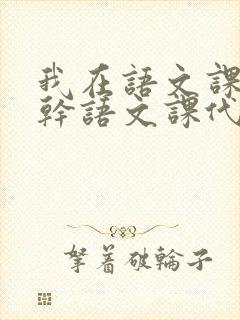 我在語文課
幹語文課代
拏着破輪子